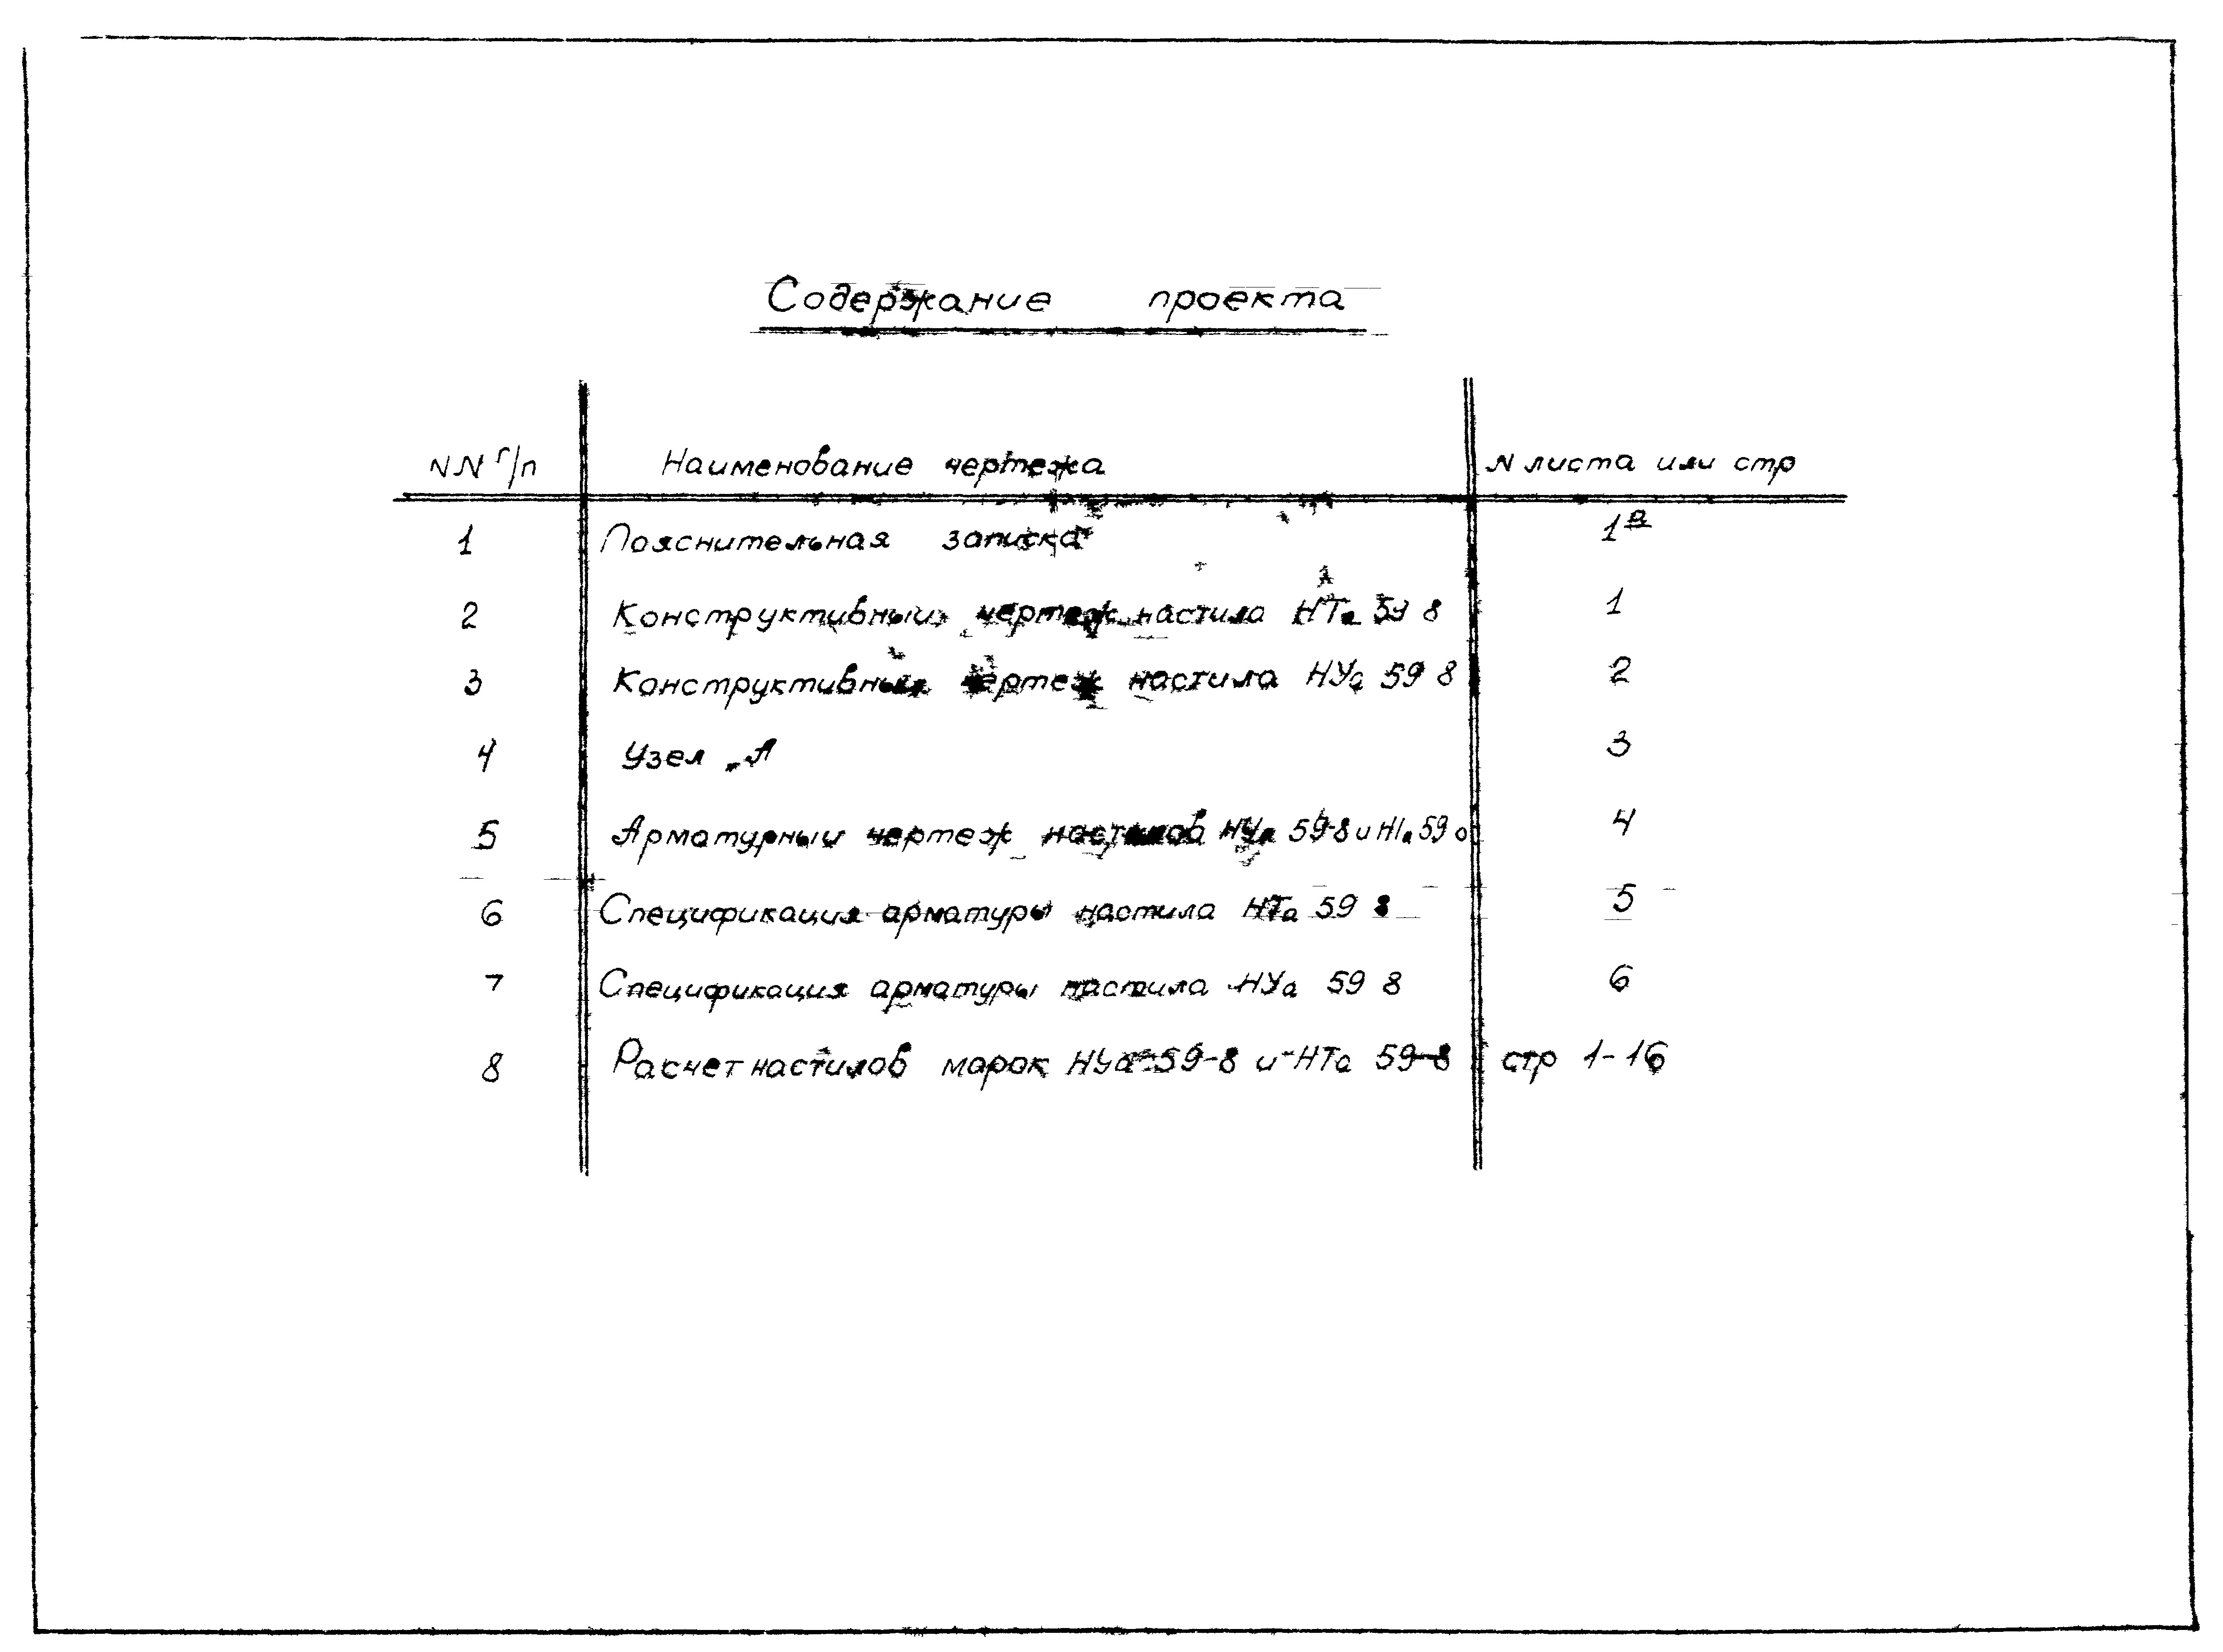 Содержание проекта
NN п/п Наименование чертежа N листа или стр
1 Пояснительная записка 1а
2 Конструктивный чертеж настила НТа 59 8 1
3 Конструктивный чертеж настила НУа 59 8 2
4 Узел „А 3
5 Арматурный чертеж настилов НУа 59-8 и НТа 59 4
6 Спецификация арматуры настила НТа 59 8 5
7 Спецификация арматуры настила НУа 59 8 6
8 Расчет настилов марок НУа-59-8 и НТа 59-8 стр 1-16